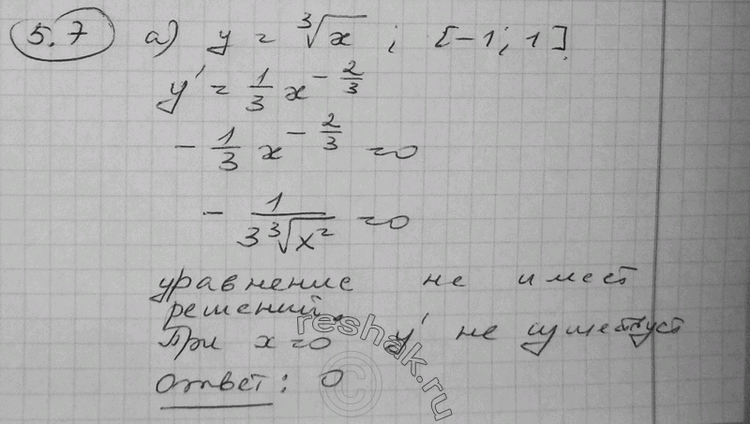 5.7 а) y = ∛x ; [-1; 1]
y' = 1/3 x^(-2/3)
- 1/3 x^(-2/3) = 0
- 1/(3∛x²) = 0
уравнение не имеет
решений.
При x=0 y' не существует
Ответ: 0
reshak.ru
©